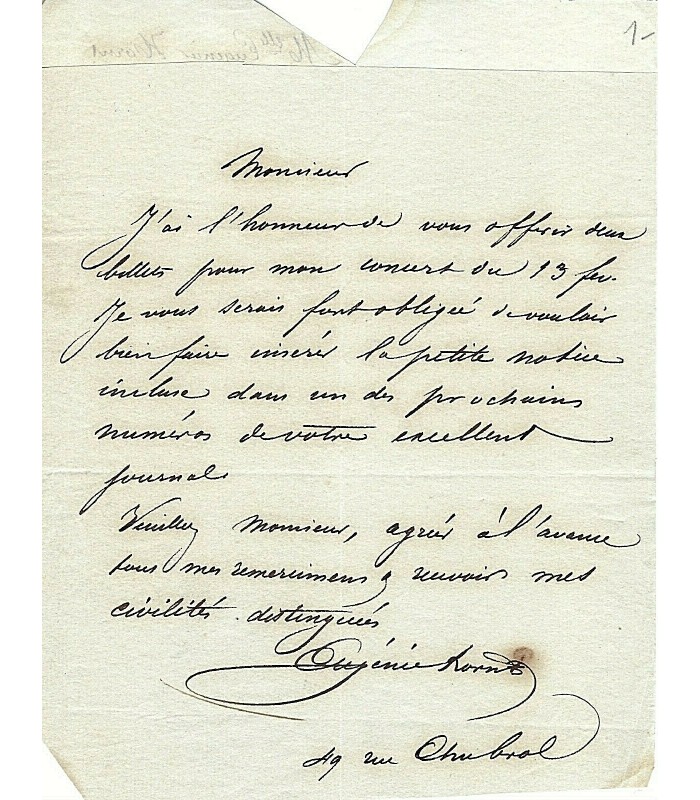 1-
Monsieur
J'ai l'honneur de vous offrir deux
billets pour mon concert du 13 fev.
Je vous serais fort obligée de vouloir
bien faire insérer la petite notice
incluse dans un des prochains
numéros de votre excellent
journal.
Veuillez Monsieur, agréer à l'avance
tous mes remercimens & recevoir mes
civilités distinguées
Eugénie
49 rue Chabrol